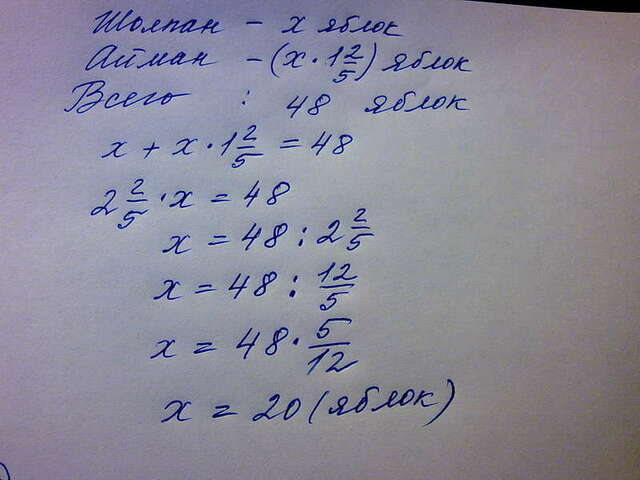 Шолпан - x яблок
Айман - (x · 1 2/5) яблок
Всего : 48 яблок
x + x · 1 2/5 = 48
2 2/5 · x = 48
x = 48 : 2 2/5
x = 48 : 12/5
x = 48 · 5/12
x = 20 (яблок)